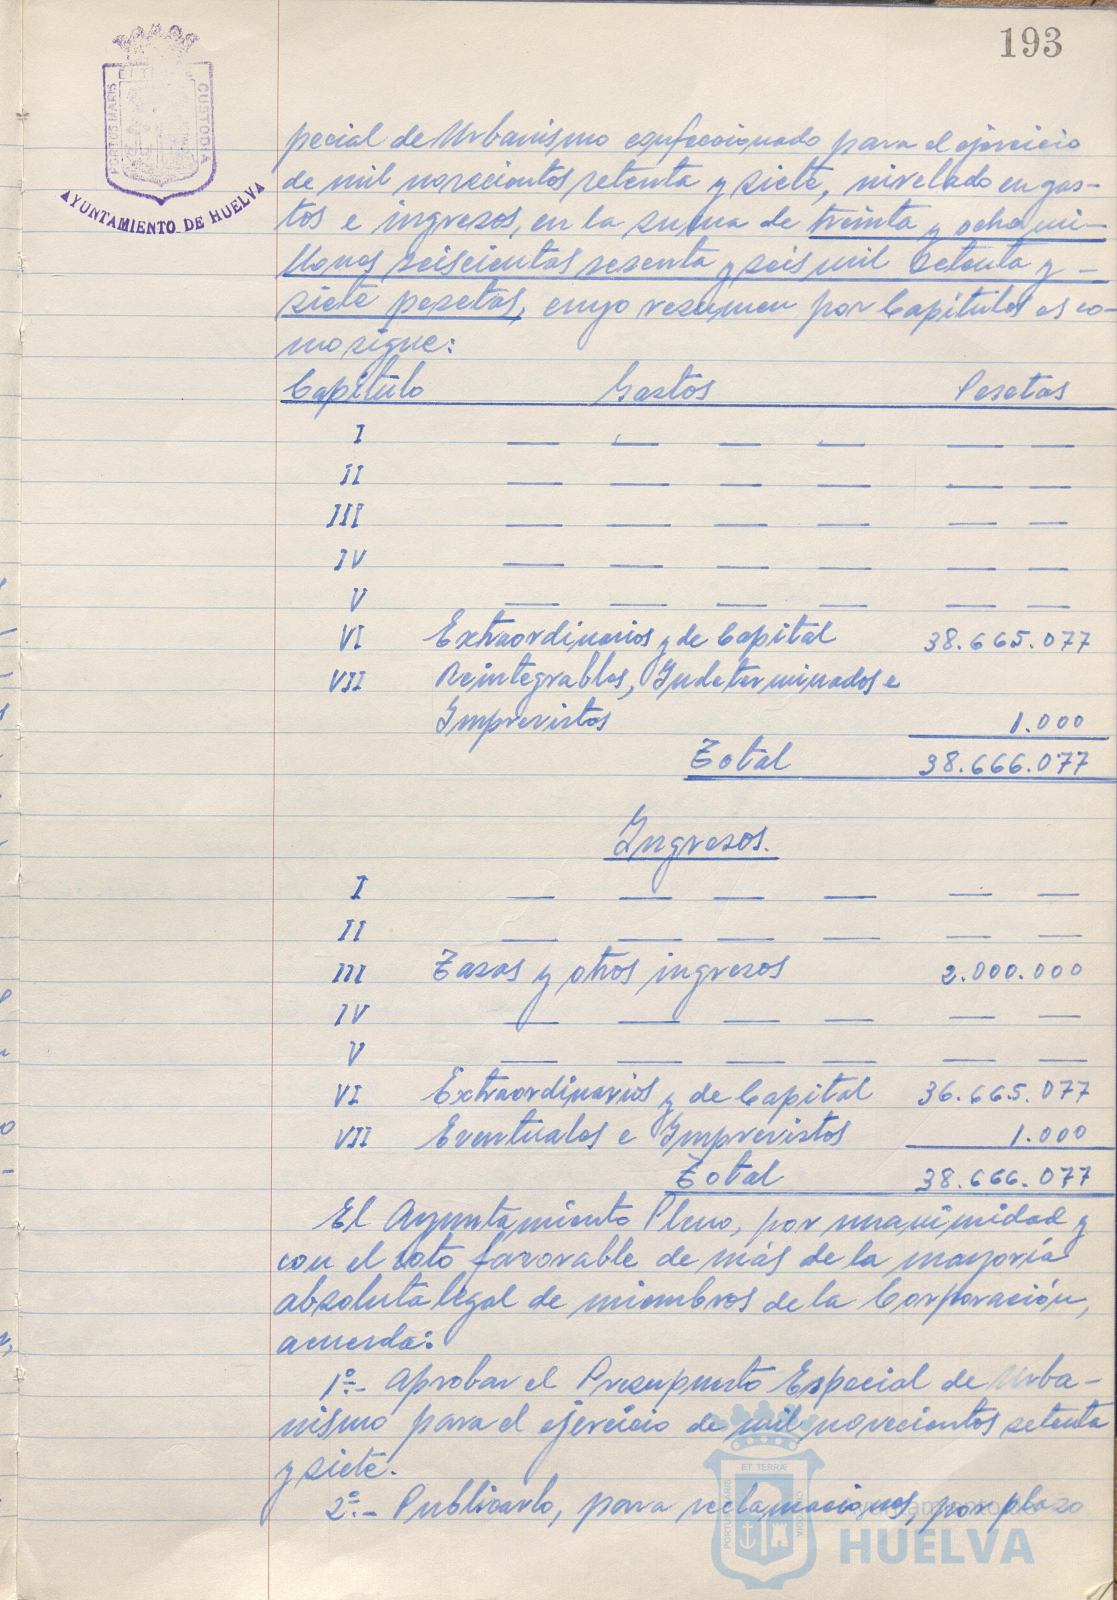 193
PORTUS MARIS ET TERRAE CUSTODIA
AYUNTAMIENTO DE HUELVA
pecial de Urbanismo confeccionado para el ejercicio
de mil novecientos setenta y siete, nivelado en gas-
tos e ingresos, en la suma de treinta y ocho mi-
llones seiscientas sesenta y seis mil setenta y -
siete pesetas, cuyo resumen por Capítulos es co-
mo sigue:
Capítulo Gastos Pesetas
I — — — — — —
II — — — — — —
III — — — — — —
IV — — — — — —
V — — — — — —
VI Extraordinarios y de Capital 38.665.077
VII Reintegrables, Indeterminados e
Imprevistos 1.000
Total 38.666.077
Ingresos.
I — — — — — —
II — — — — — —
III Tasas y otros ingresos 2.000.000
IV — — — — — —
V — — — — — —
VI Extraordinarios y de Capital 36.665.077
VII Eventuales e Imprevistos 1.000
Total 38.666.077
El Ayuntamiento Pleno, por unanimidad y
con el voto favorable de más de la mayoría
absoluta legal de miembros de la Corporación,
acuerda:
1º.- Aprobar el Presupuesto Especial de Urba-
nismo para el ejercicio de mil novecientos setenta
y siete.
2º.- Publicarlo, para reclamaciones, por plazo
PORTUS MARIS ET TERRAE CUSTODIA
Ayuntamiento de
HUELVA